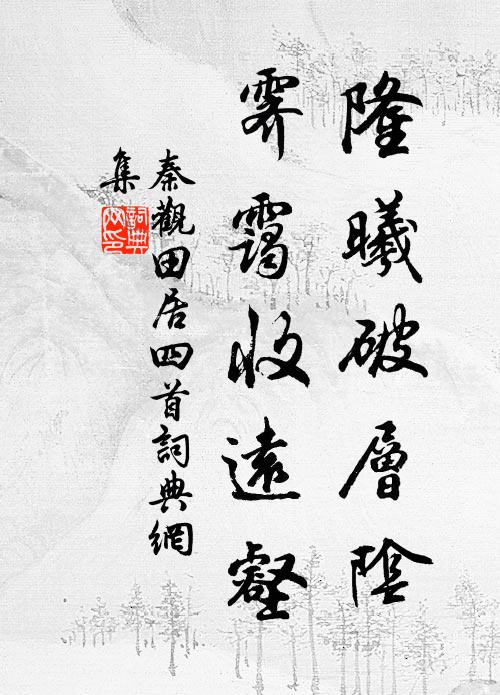 隆曦破層陰
霽靄收遠壑
秦觀田居四首詞典網
集
詞典
网印